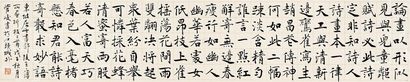 論畫以形似
見與兒童鄰
賦詩必此詩
定非知詩人
詩畫本一律
天工與清新
邊鸞雀寫生
趙昌花傳神
何如此
疎淡含精勻
誰言一點紅
解寄無邊春
瘦竹如幽人
幽花如處女
低昂枝上雀
搖蕩花間雨
雙翎決將起
衆葉紛自舉
可憐採花蜂
清蜜寄兩股
若人富天巧
春色入毫楮
懸知君能詩
寄聲求妙語